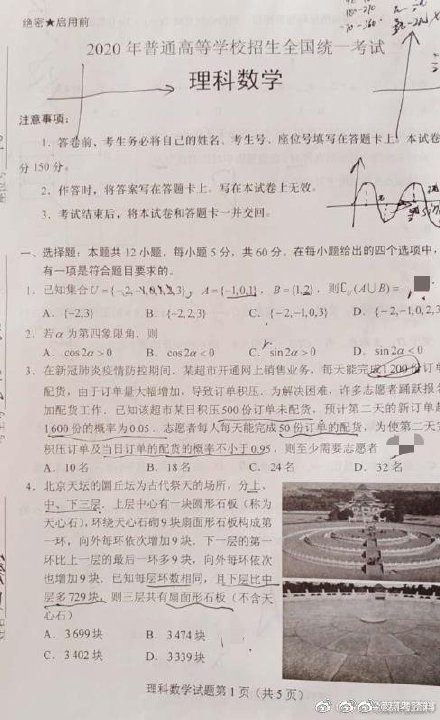 绝密★启用前
2020年普通高等学校招生全国统一考试
理科数学
注意事项：
1．答卷前，考生务必将自己的姓名、考生号、座位号填写在答题卡上，本试卷
分150分。
2．作答时，将答案写在答题卡上。写在本试卷上无效。
3．考试结束后，将本试卷和答题卡一并交回。
一、选择题：本题共12小题，每小题5分，共60分。在每小题给出的四个选项中，
有一项是符合题目要求的。
1．已知集合U={-2,-1,0,1,2,3}，A={-1,0,1}，B={1,2}，则∁U(A∪B)=
A．{-2,3} B．{-2,2,3} C．{-2,-1,0,3} D．{-2,-1,0,2
2．若α为第四象限角，则
A．cos2α>0 B．cos2α<0 C．sin2α>0 D．sin2α<0
3．在新冠肺炎疫情防控期间，某超市开通网上销售业务，每天能完成1200份订单
配货，由于订单量大幅增加，导致订单积压．为解决困难，许多志愿者踊跃报名
加配货工作．已知该超市某日积压500份订单未配货，预计第二天的新订单超
1600份的概率为0.05．志愿者每人每天能完成50份订单的配货，为使第二天
积压订单及当日订单的配货的概率不小于0.95，则至少需要志愿者
A．10名 B．18名 C．24名 D．32名
4．北京天坛的圜丘坛为古代祭天的场所，分上、
中、下三层．上层中心有一块圆形石板（称为
天心石），环绕天心石砌9块扇面形石板构成第
一环，向外每环依次增加9块．下一层的第一
环比上一层的最后一环多9块，向外每环依次
也增加9块．已知每层环数相同，且下层比中
层多729块，则三层共有扇面形石板（不含天
心石）
A．3699块 B．3474块
C．3402块 D．3339块
理科数学试题第1页（共5页）